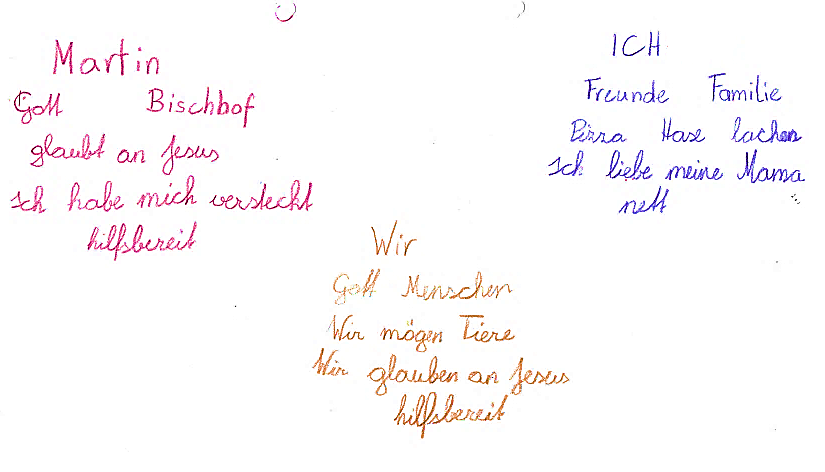 Martin
Gott Bischhof
glaubt an Jesus
Ich habe mich versteckt
hilfsbereit
ICH
Freunde Familie
Pizza Hase lachen
Ich liebe meine Mama
nett
Wir
Gott Menschen
Wir mögen Tiere
Wir glauben an Jesus
hilfsbereit